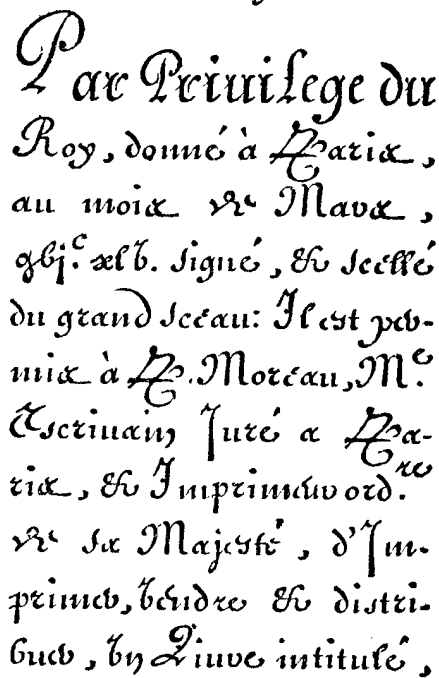 Par Priuilege du
Roy, donné à Paris,
au mois de Mars,
xvj.ᶜ xlv. signé, & scellé
du grand sceau: Il est per-
mis à P. Moreau, M.ᵉ
Escriuain Iuré a Pa-
ris, & Imprimeur ord.ʳᵉ
de sa Majesté, d'Im-
primer, vendre & distri-
buer, vn Liure intitulé,